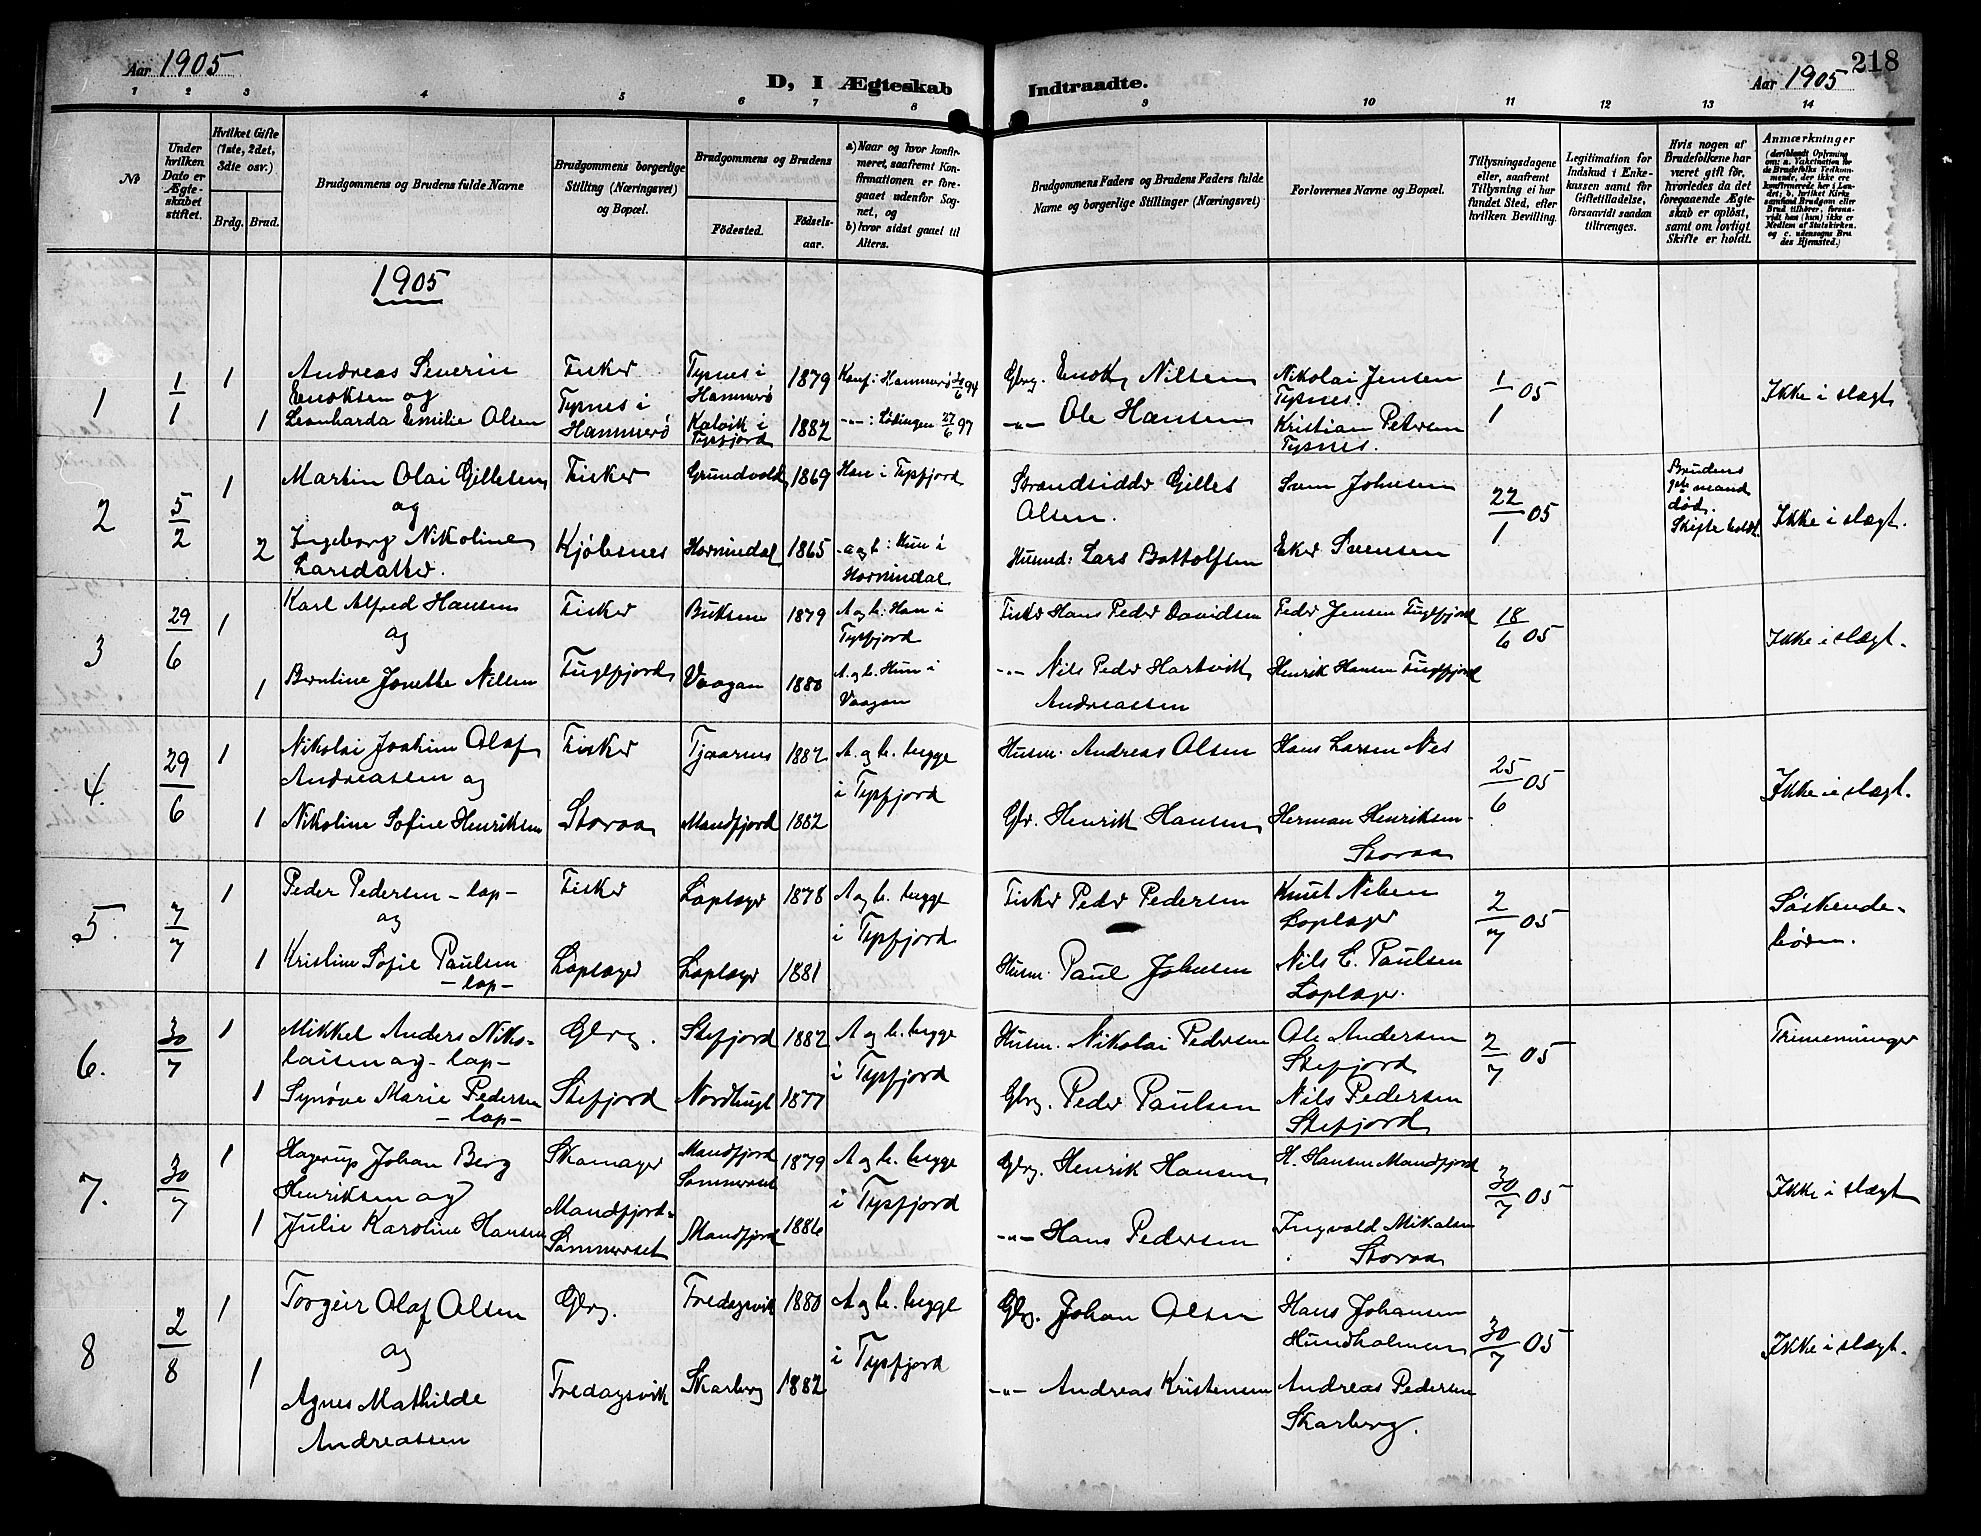 218
Aar 1905
D, I Ægteskab Indtraadte.
Aar 1905
1 2 3 4 5 6 7 8 9 10 11 12 13 14
No
Under hvilken Dato er Ægteskabet stiftet.
Hvilket Gifte (1ste, 2det, 3die osv.)
Brdg. Brud.
Brudgommens og Brudens fulde Navne
Brudgommens borgerlige Stilling (Næringsvei) og Bopæl.
Brudgommens og Brudens
Fødested. Fødselsaar.
a) Naar og hvor konfirmeret, saafremt Konfirmationen er foregaaet udenfor Sognet, og
b) hvor sidst gaaet til Alters.
Brudgommens Faders og Brudens Faders fulde Navne og borgerlige Stillinger (Næringsvei)
Forlovernes Navne og Bopæl.
Tillysningsdagene eller, saafremt Tillysning ei har fundet Sted, efter hvilken Bevilling.
Legitimation for Indskud i Enkekassen samt for Giftetilladelse, forsaavidt saadan tiltrænges.
Hvis nogen af Brudefolkene har været gift før, hvorledes da det foregaaende Ægteskab er opløst, samt om lovligt Skifte er holdt.
Anmærkninger
1905
1 1/1 1 Andreas Severin Fisker Tysnes i 1879 Konf: Hammerø 94 Gbrg. Enok Nilsen Nikolai Jensen 1/1 05 Ikke i slægt
Enoksen og Tysnes i Hammerø Tysnes.
1 Leonharda Emilie Olsen Hammerø Kalvik i Tysfjord 1882 -"-: Lødingen 27/6 97 -"- Ole Hansen Kristian Petersen
Tysnes.
2 5/2 1 Martin Olai Gillesen Fisker Grundvold 1869 Han i Tysfjord Strandsidder Gilles Sven Johnsen 22/1 05 Brudens Ikke i slægt.
og Olsen. mand død.
2 Ingeborg Nikoline Kjøbsnes Hornindal 1865 a og b: Hun i Husmd: Lars Bottolfsen Eker Svensen Skifte holdt.
Larsdatter. Hornindal
3 29/6 1 Karl Alfred Hansen Fisker Buksnes 1879 A og b. Han i Fisker Hans Peder Davidsen Peder Jensen Fuglfjord 18/6 05 Ikke i slægt.
og Tysfjord
1 Berntine Jonette Nilsen Fuglfjord Vaagan 1880 A. og b. Hun i -"- Nils Peder Hartvik Henrik Hansen Fuglfjord
Vaagan Andreassen
4. 29/6 1 Nikolai Joakim Olaf Fisker Tjaarnes 1882 A. og b. begge Husm. Andreas Olsen Hans Larsen Nes 25/6 05 Ikke i slægt.
Andreassen og i Tysfjord
1 Nikoline Sofie Henriksen Storaa Mandfjord 1882 Gbr. Henrik Hansen Herman Henriksen
Storaa
5. 7/7 1 Peder Pedersen - lap - Fisker Laplæger 1878 A og b. begge Fisker Peder Pedersen Knut Nilsen 2/7 05 Søskende-
og i Tysfjord Laplæger børn.
1 Kristine Sofie Paulsen Laplæger Laplæger 1881 Husm. Paul Johnsen Nils E. Paulsen
- lap - Laplæger.
6. 30/7 1 Mikkel Anders Niko- Gbrg. Stefjord 1882 A og b. begge Husm. Nikolai Pedersen Ole Andersen 2/7 05 Trimenninger
laisen og - lap - i Tysfjord Stefjord
1 Synøve Marie Pedersen Stefjord Nordbugt 1877 Gbrg. Peder Paulsen Nils Pedersen
- lap - Stefjord
7. 30/7 1 Hagerup Johan Berg Skomager Mandfjord 1879 A og b. begge Gbrg. Henrik Hansen H. Hansen Mandfjord 30/7 05 Ikke i slægt
Henriksen og Mandfjord- Sommerset i Tysfjord
1 Julie Karoline Hansen Sommerset Mandfjord 1886 -"- Hans Pedersen Ingvald Mikalsen
Storaa
8 2/8 1 Torgeir Olaf Olsen Gbrg. Fredagsvik 1880 A og b. begge Gbrg. Johan Olsen Hans Johansen 30/7 05 Ikke i slægt.
og i Tysfjord Hundholmen
1 Agnes Mathilde Fredagsvik Skarberg 1882 -"- Andreas Kristensen Andreas Pedersen
Andreassen Skarberg.